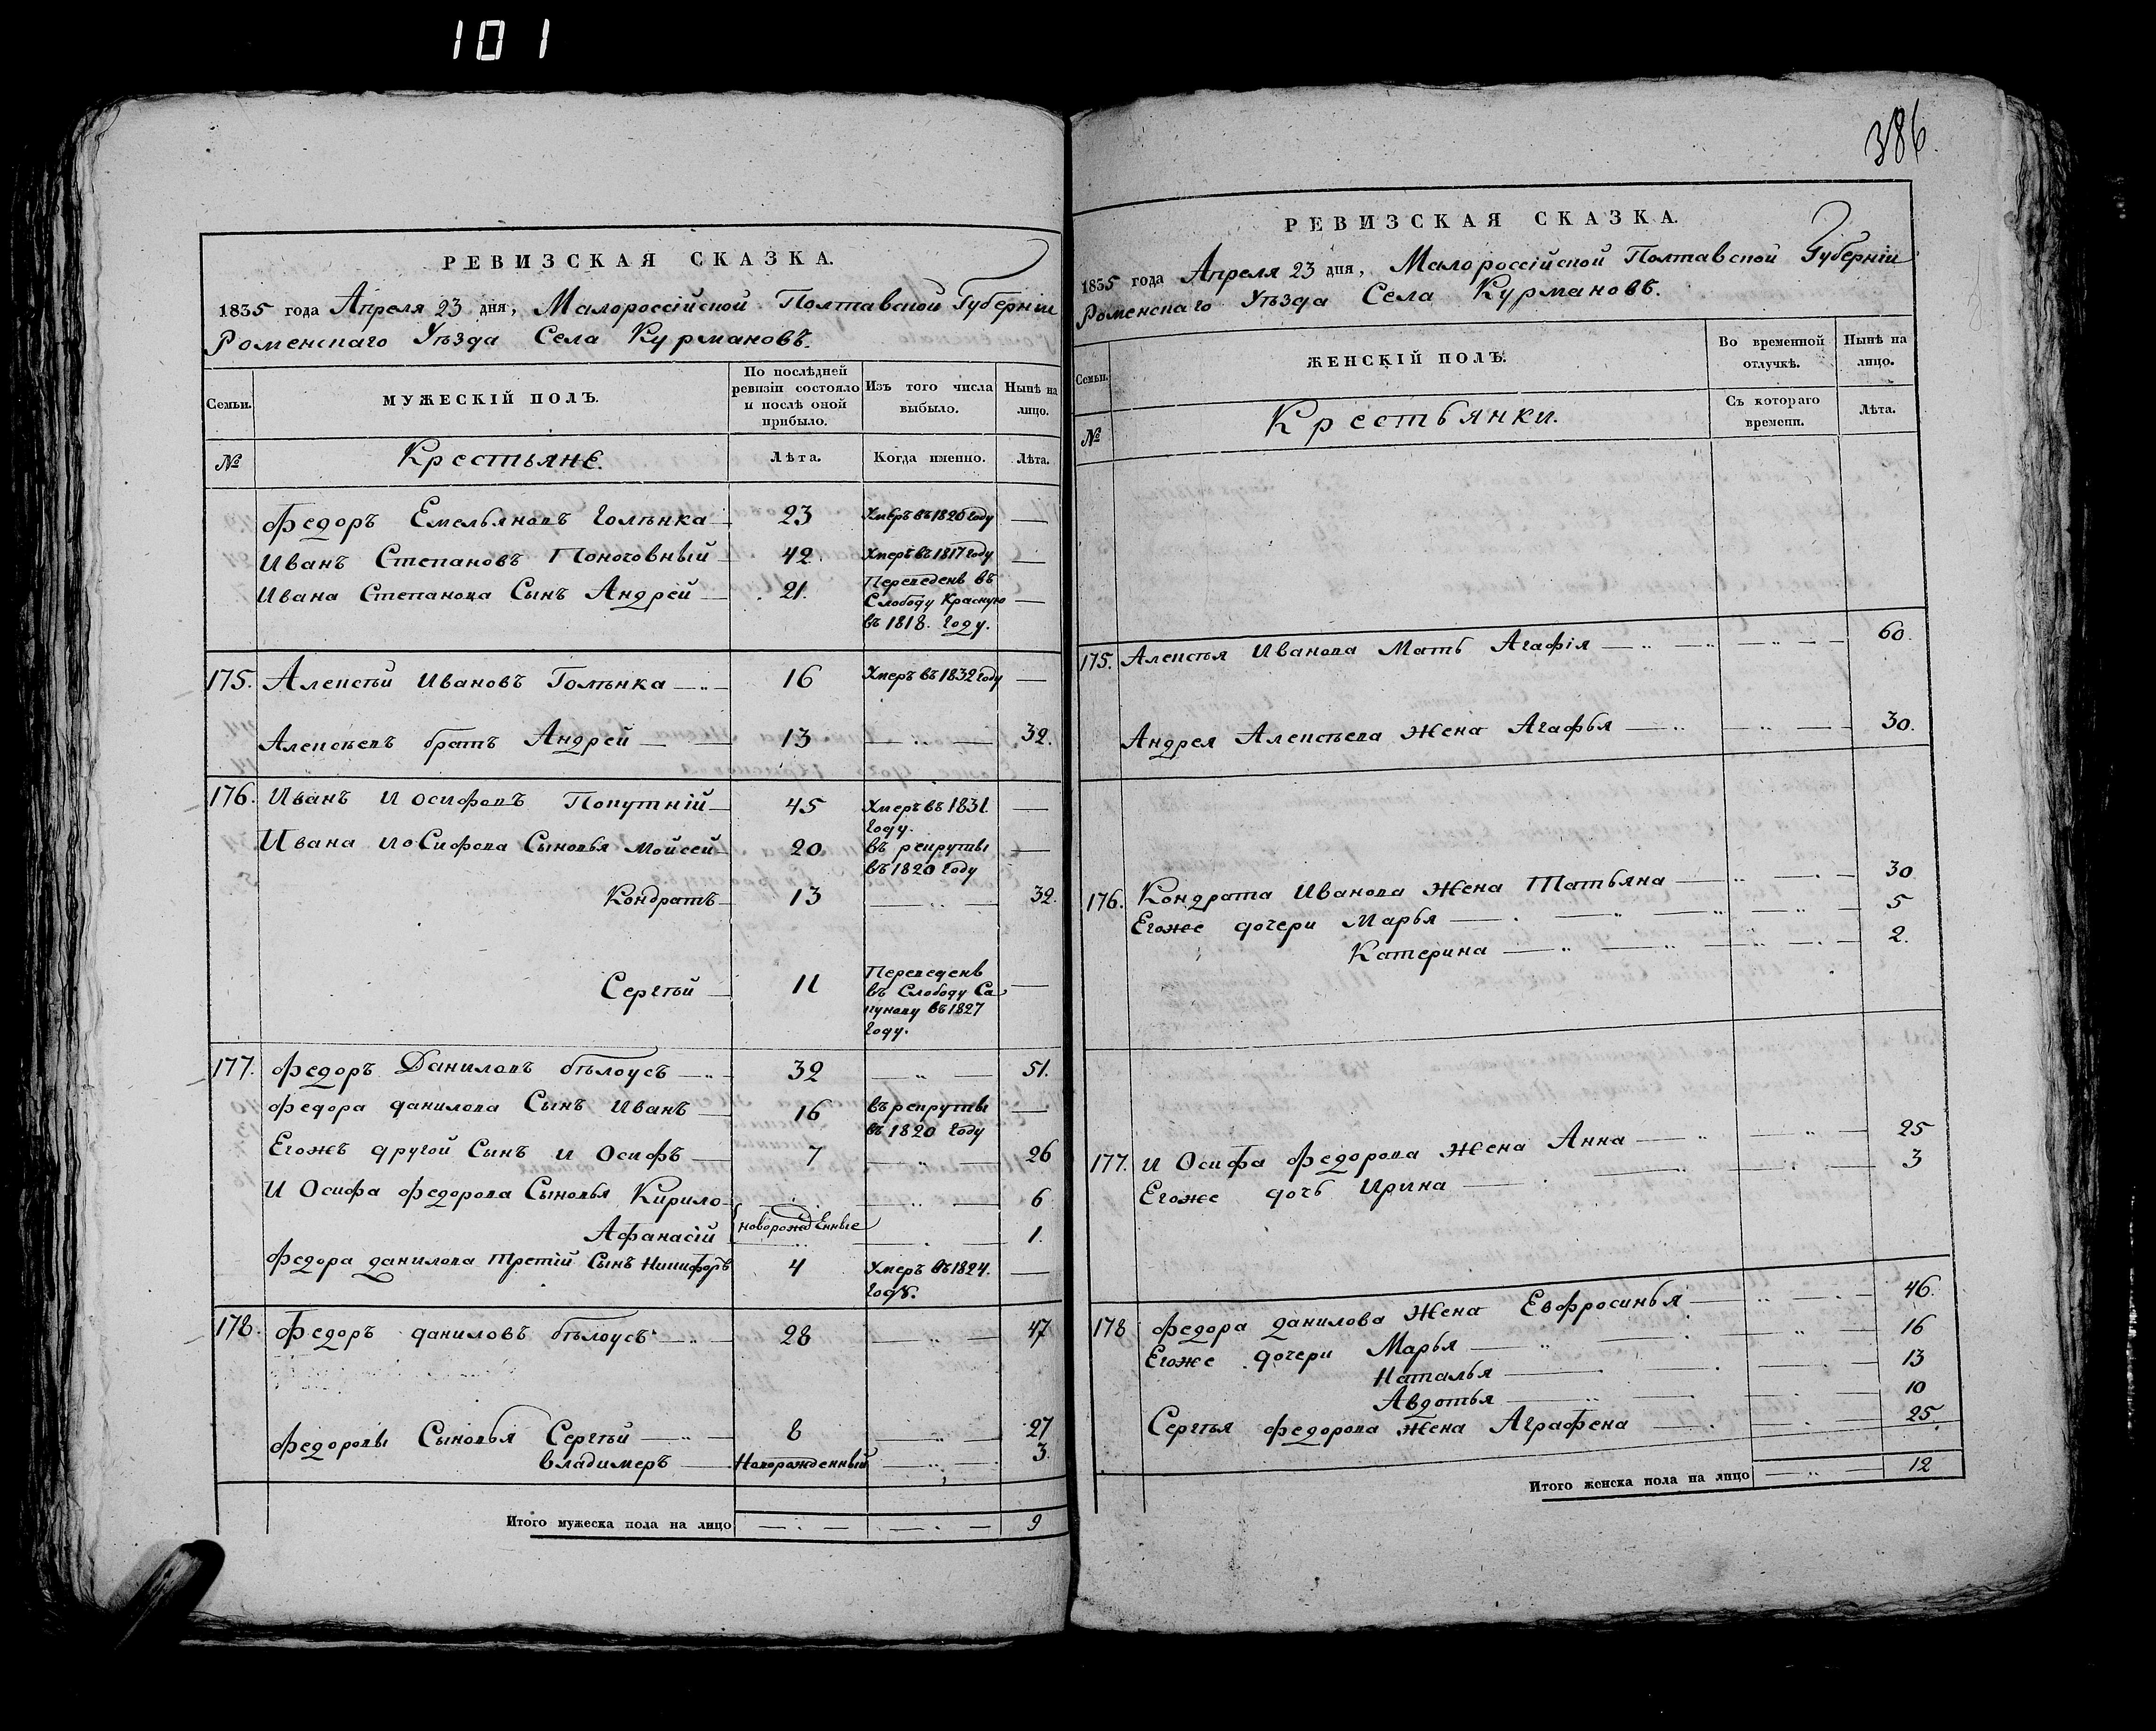 101
386.
РЕВИЗСКАЯ СКАЗКА.
1835 года Апреля 23 дня, Малороссійской Полтавской Губерніи
Роменскаго Уѣзда Села Курмановъ.
Семьи.
МУЖЕСКІЙ ПОЛЪ.
По послѣдней
ревизіи состояло
и послѣ оной
прибыло.
Изъ того числа
выбыло.
Нынѣ на
лицо.
№
Крестьяне.
Лѣта.
Когда именно.
Лѣта.
Федоръ Емельяновъ Голѣнка 23 Умеръ въ 1826 году —
Иванъ Степановъ Поночовный 42. Умеръ въ 1817 году —
Ивана Степанова Сынъ Андрей 21. Переведенъ въ
Слободу Красную —
въ 1818. году.
175. Алексѣй Ивановъ Голѣнка 16 Умеръ въ 1832 году —
Алексѣевъ братъ Андрей 13 — „ — 32.
176. Иванъ Иосифовъ Попутній 45 Умеръ въ 1831 —
году.
Ивана Иосифова Сыновья Мойсей 20 въ рекруты —
въ 1820 году
Кондратъ 13 — „ — 32.
Сергѣй 11 Переведенъ
въ Слободу Са —
пунову въ 1827
году.
177. Федоръ Даниловъ бѣлоусъ 32 — „ — 51.
Федора данилова Сынъ Иванъ 16 въ рекруты —
въ 1820 году
Егожъ другой Сынъ Иосифъ 7 — „ — 26
Иосифа федорова Сыновья Кирило — „ — 6
новорожденные
Афанасій — „ — 1.
Федора данилова третій Сынъ Никифоръ 4 Умеръ въ 1824. —
году.
178. Федоръ даниловъ бѣлоусъ 28 — „ — 47
Федоровы Сыновья Сергѣй 8 — „ — 27
владимеръ Новорожденный — „ — 3.
Итого мужеска пола на лицо — „ — — „ — 9
РЕВИЗСКАЯ СКАЗКА.
1835 года Апреля 23 дня, Малороссійской Полтавской Губерніи
Роменскаго Уѣзда Села Курмановъ.
Семьи.
ЖЕНСКІЙ ПОЛЪ.
Во временной
отлучкѣ.
Нынѣ на
лицо.
№
Крестьянки.
Съ котораго
времени.
Лѣта.
175. Алексѣя Иванова Мать Агафія — „ — 60.
Андрея Алексѣева Жена Агафья — „ — 30.
176. Кондрата Иванова Жена Татьяна — „ — 30
Егоже дочери Марья — „ — 5
Катерина — „ — 2.
177. Иосифа федорова Жена Анна — „ — 25
Егоже дочь Ирина — „ — 3
178 Федора данилова Жена Евфросинья — „ — 46.
Егоже дочери Марья — „ — 16
Наталья — „ — 13
Авдотья — „ — 10
Сергѣя федорова Жена Аграфена — „ — 25.
Итого женска пола на лицо — „ — 12